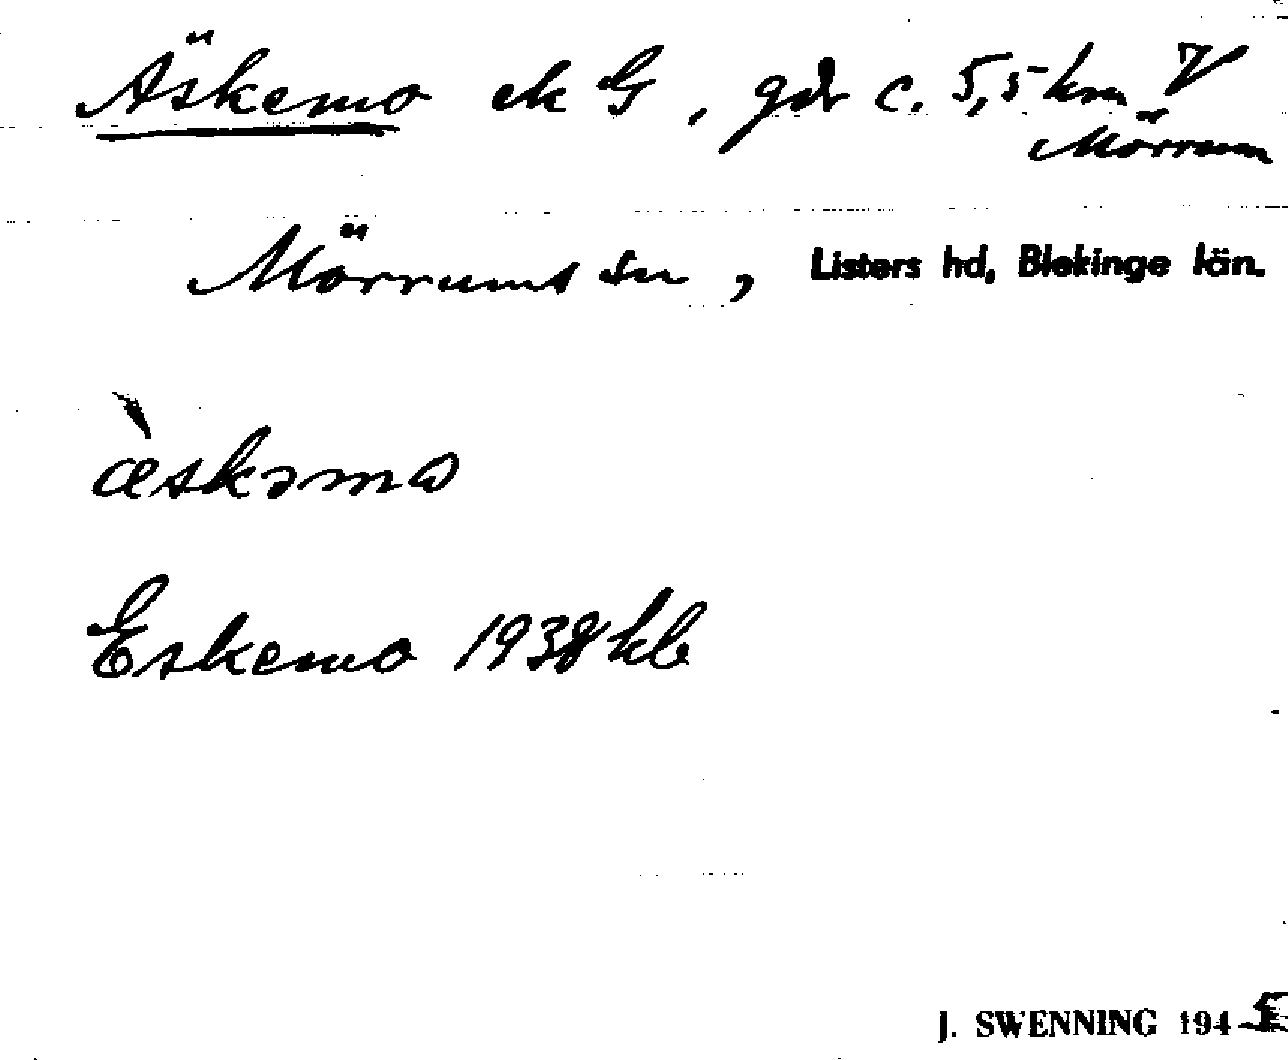 Äskemo ek G, gdr c. 5,5 km V
Mörrum
Mörrums sn, Listers hd, Blekinge län.
æ̀skəmo
Eskemo 1938 kb
J. SWENNING 1945